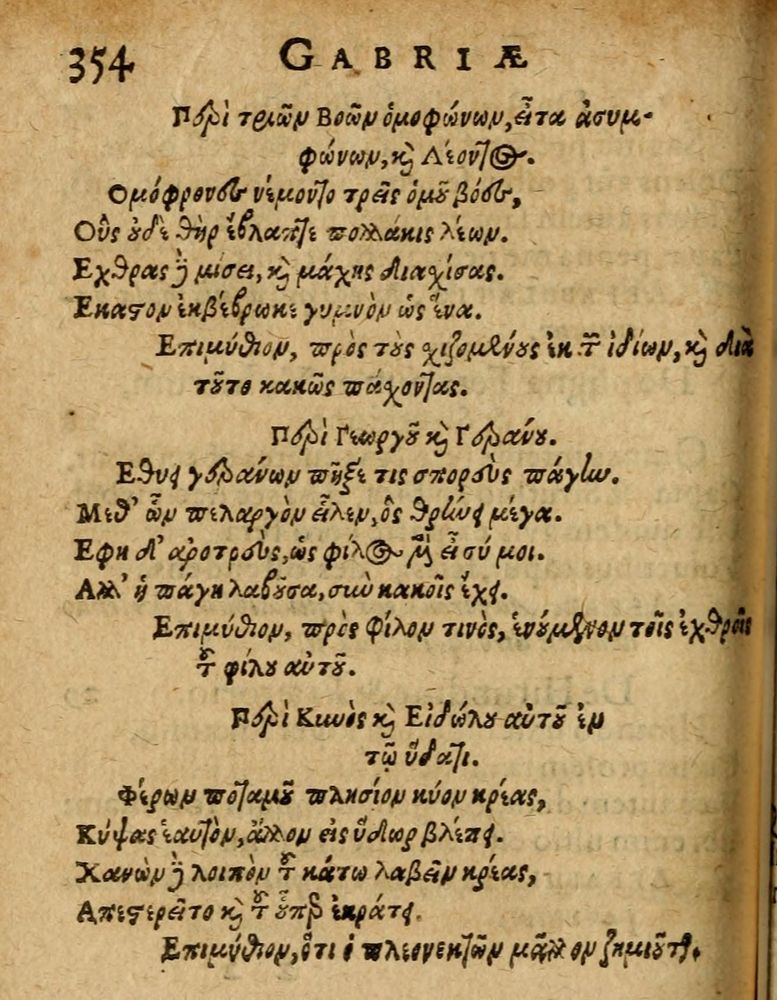 354 GABRIÆ
Περὶ τριῶν Βοῶν ὁμοφώνων, εἶτα ἀσυμ-
φώνων, καὶ Λέοντος.
Ομόφρονες νέμοντο τρεῖς ὁμοῦ βόες,
Οὓς οὐδὲ θὴρ ἔβλαπτε πολλάκις λέων.
Εχθρας δὲ μίσει, καὶ μάχης διαχίσας.
Εκαστον ἐκβέβρωκε γυμνὸν ὡς ἕνα.
Επιμύθιον, πρὸς τοὺς χιζομένους ἐκ τῶν ἰδίων, καὶ διὰ
τοῦτο κακῶς πάχοντας.
Περὶ Γεωργοῦ καὶ Γεράνου.
Εθει γεράνων πῆξέ τις σπορεὺς πάγην.
Μεθ' ὧν πελαργὸν εἷλεν, ὃς θρήνει μέγα.
Εφη δ' αροτρεὺς, ὡς φίλος μὲν εἶ σύ μοι.
Αλλ' ἡ πάγη λαβοῦσα, σὺν κακοῖς ἔχει.
Επιμύθιον, πρὸς φίλον τινὸς, ἑνούμενον τοῖς ἐχθροῖς
τοῦ φίλου αὐτοῦ.
Περὶ Κυνὸς καὶ Εἰδώλου αὐτοῦ ἐν
τῷ ὕδατι.
Φέρων ποταμοῦ πλησίον κύον κρέας,
Κύψας ἑαυτὸν, ἄλλον εἰς ὕδωρ βλέπει.
Χανὼν δὲ λοιπὸν τοῦ κάτω λαβεῖν κρέας,
Απεστερεῖτο καὶ τοῦ ὗπερ ἐκράτει.
Επιμύθιον, ὅτι ὁ πλεονεκτῶν μᾶλλον ζημιοῦται.